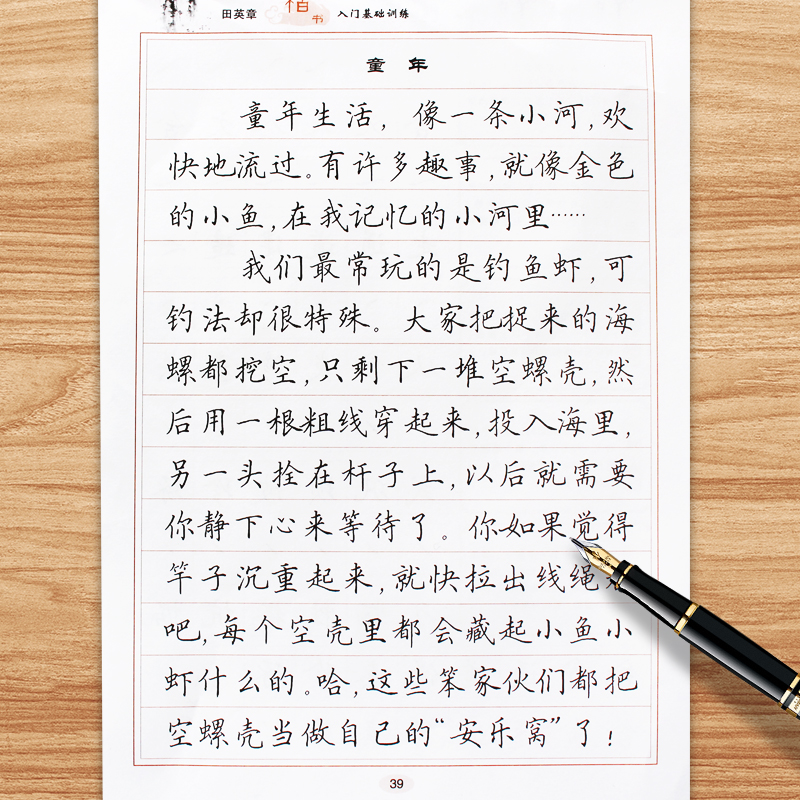 田英章 书 入门基础训练
童年
童年生活,像一条小河,欢
快地流过。有许多趣事,就像金色
的小鱼,在我记忆的小河里……
我们最常玩的是钓鱼虾,可
钓法却很特殊。大家把捉来的海
螺都挖空,只剩下一堆空螺壳,然
后用一根粗线穿起来,投入海里,
另一头拴在杆子上,以后就需要
你静下心来等待了。你如果觉得
竿子沉重起来,就快拉出线绳
吧,每个空壳里都会藏起小鱼小
虾什么的。哈,这些笨家伙们都把
空螺壳当做自己的“安乐窝”了!
39